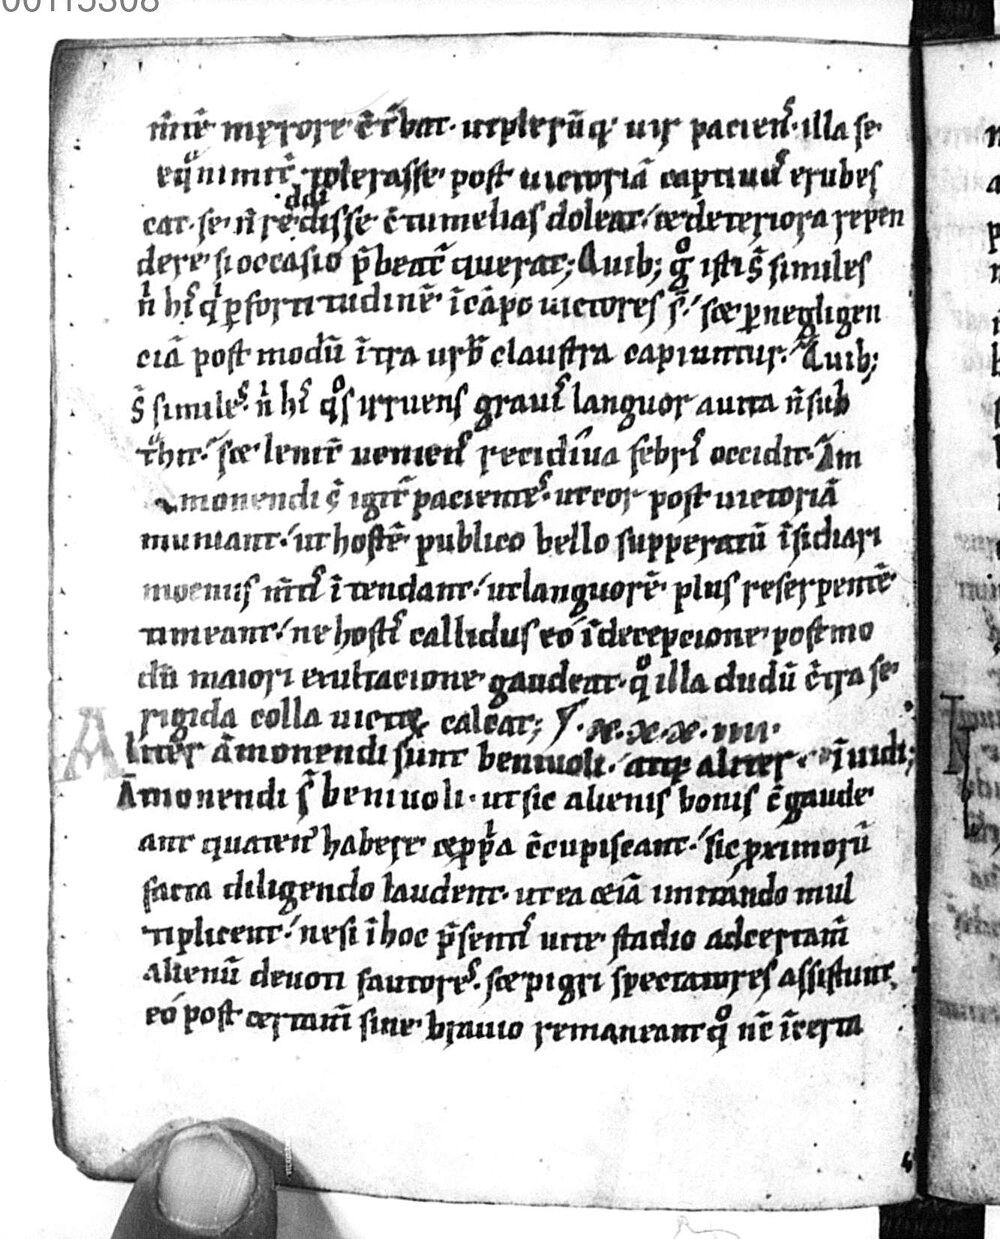 00115308
m̄ne męrore c̄t͛bat· ut plerūq; uir paciens· illa se
eqͦnimit͛ tolerasse post uictoriā captiuus erubes
cat· se n̄ reddidisse c̄tumelias doleat· ⁊ deteriora repen
dere si occasio p̄beat͛ querat; Quib; gͦ isti s̄ similes
n̄ hi qui ꝑ fortitudinē ī cāpo uictores s̄· s; ꝑ negligen
ciā post modū ītra urb̄ claustra capiuntur· Quib;
s̄ similes n̄ hi qͦs irruens grauis languor a uita n̄ sub
t͛hit· s; lenit͛ ueniens recidiua febris occidit· Am
monendi s̄ igit͛ pacientes· ut cor post uictoriā
muniant· ut hostē publico bello supperatū īsidiari
moeniis m̄tis ītendant· ut languorē plus reserpentē
timeant· ne hostis callidus eo ī decepcione post mo
dū maiori exultacione gaudeat· qͦ illa dudū c̄tra se
rigida colla uictoꝝ calcat; x·x·x·iiii·
Aliter āmonendi sunt beniuoli· atq; aliter īuidi;
Āmonendi s̄ beniuoli· ut sic alienis bonis c̄gaude
ant quaten᾽ habere ⁊ ꝓpria c̄cupiscant· sic ꝓximorū
facta diligendo laudent· ut ea ⁊iā imitando mul
tiplicent· ne si ī hoc p̄sentis uite stadio ad certam̄
alienū deuoti fautores· s; pigri spectatores assistunt·
eo post certam̄ sine brauio remaneant qͦ nc̄ ī certa